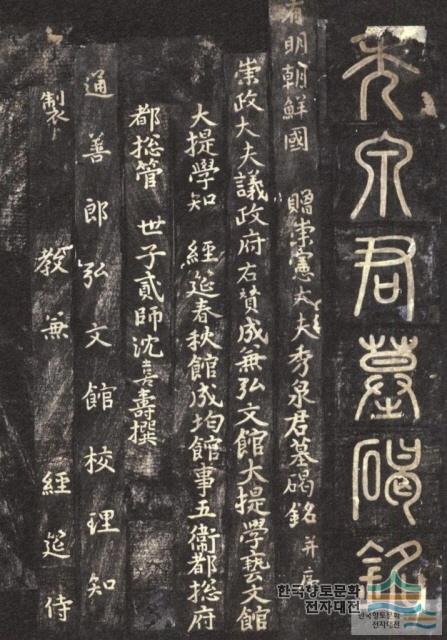 秀泉君墓碣銘
有明朝鮮國 贈崇憲大夫秀泉君墓碣銘 并序
崇政大夫議政府右贊成兼弘文館大提學藝文館
大提學知 經筵春秋館成均館事五衛都揔府
都揔管 世子貳師沈喜壽撰
通善郎弘文館校理知
製 教兼 經筵侍
한국향토문화
전자대전
한국향토문화
전자대전